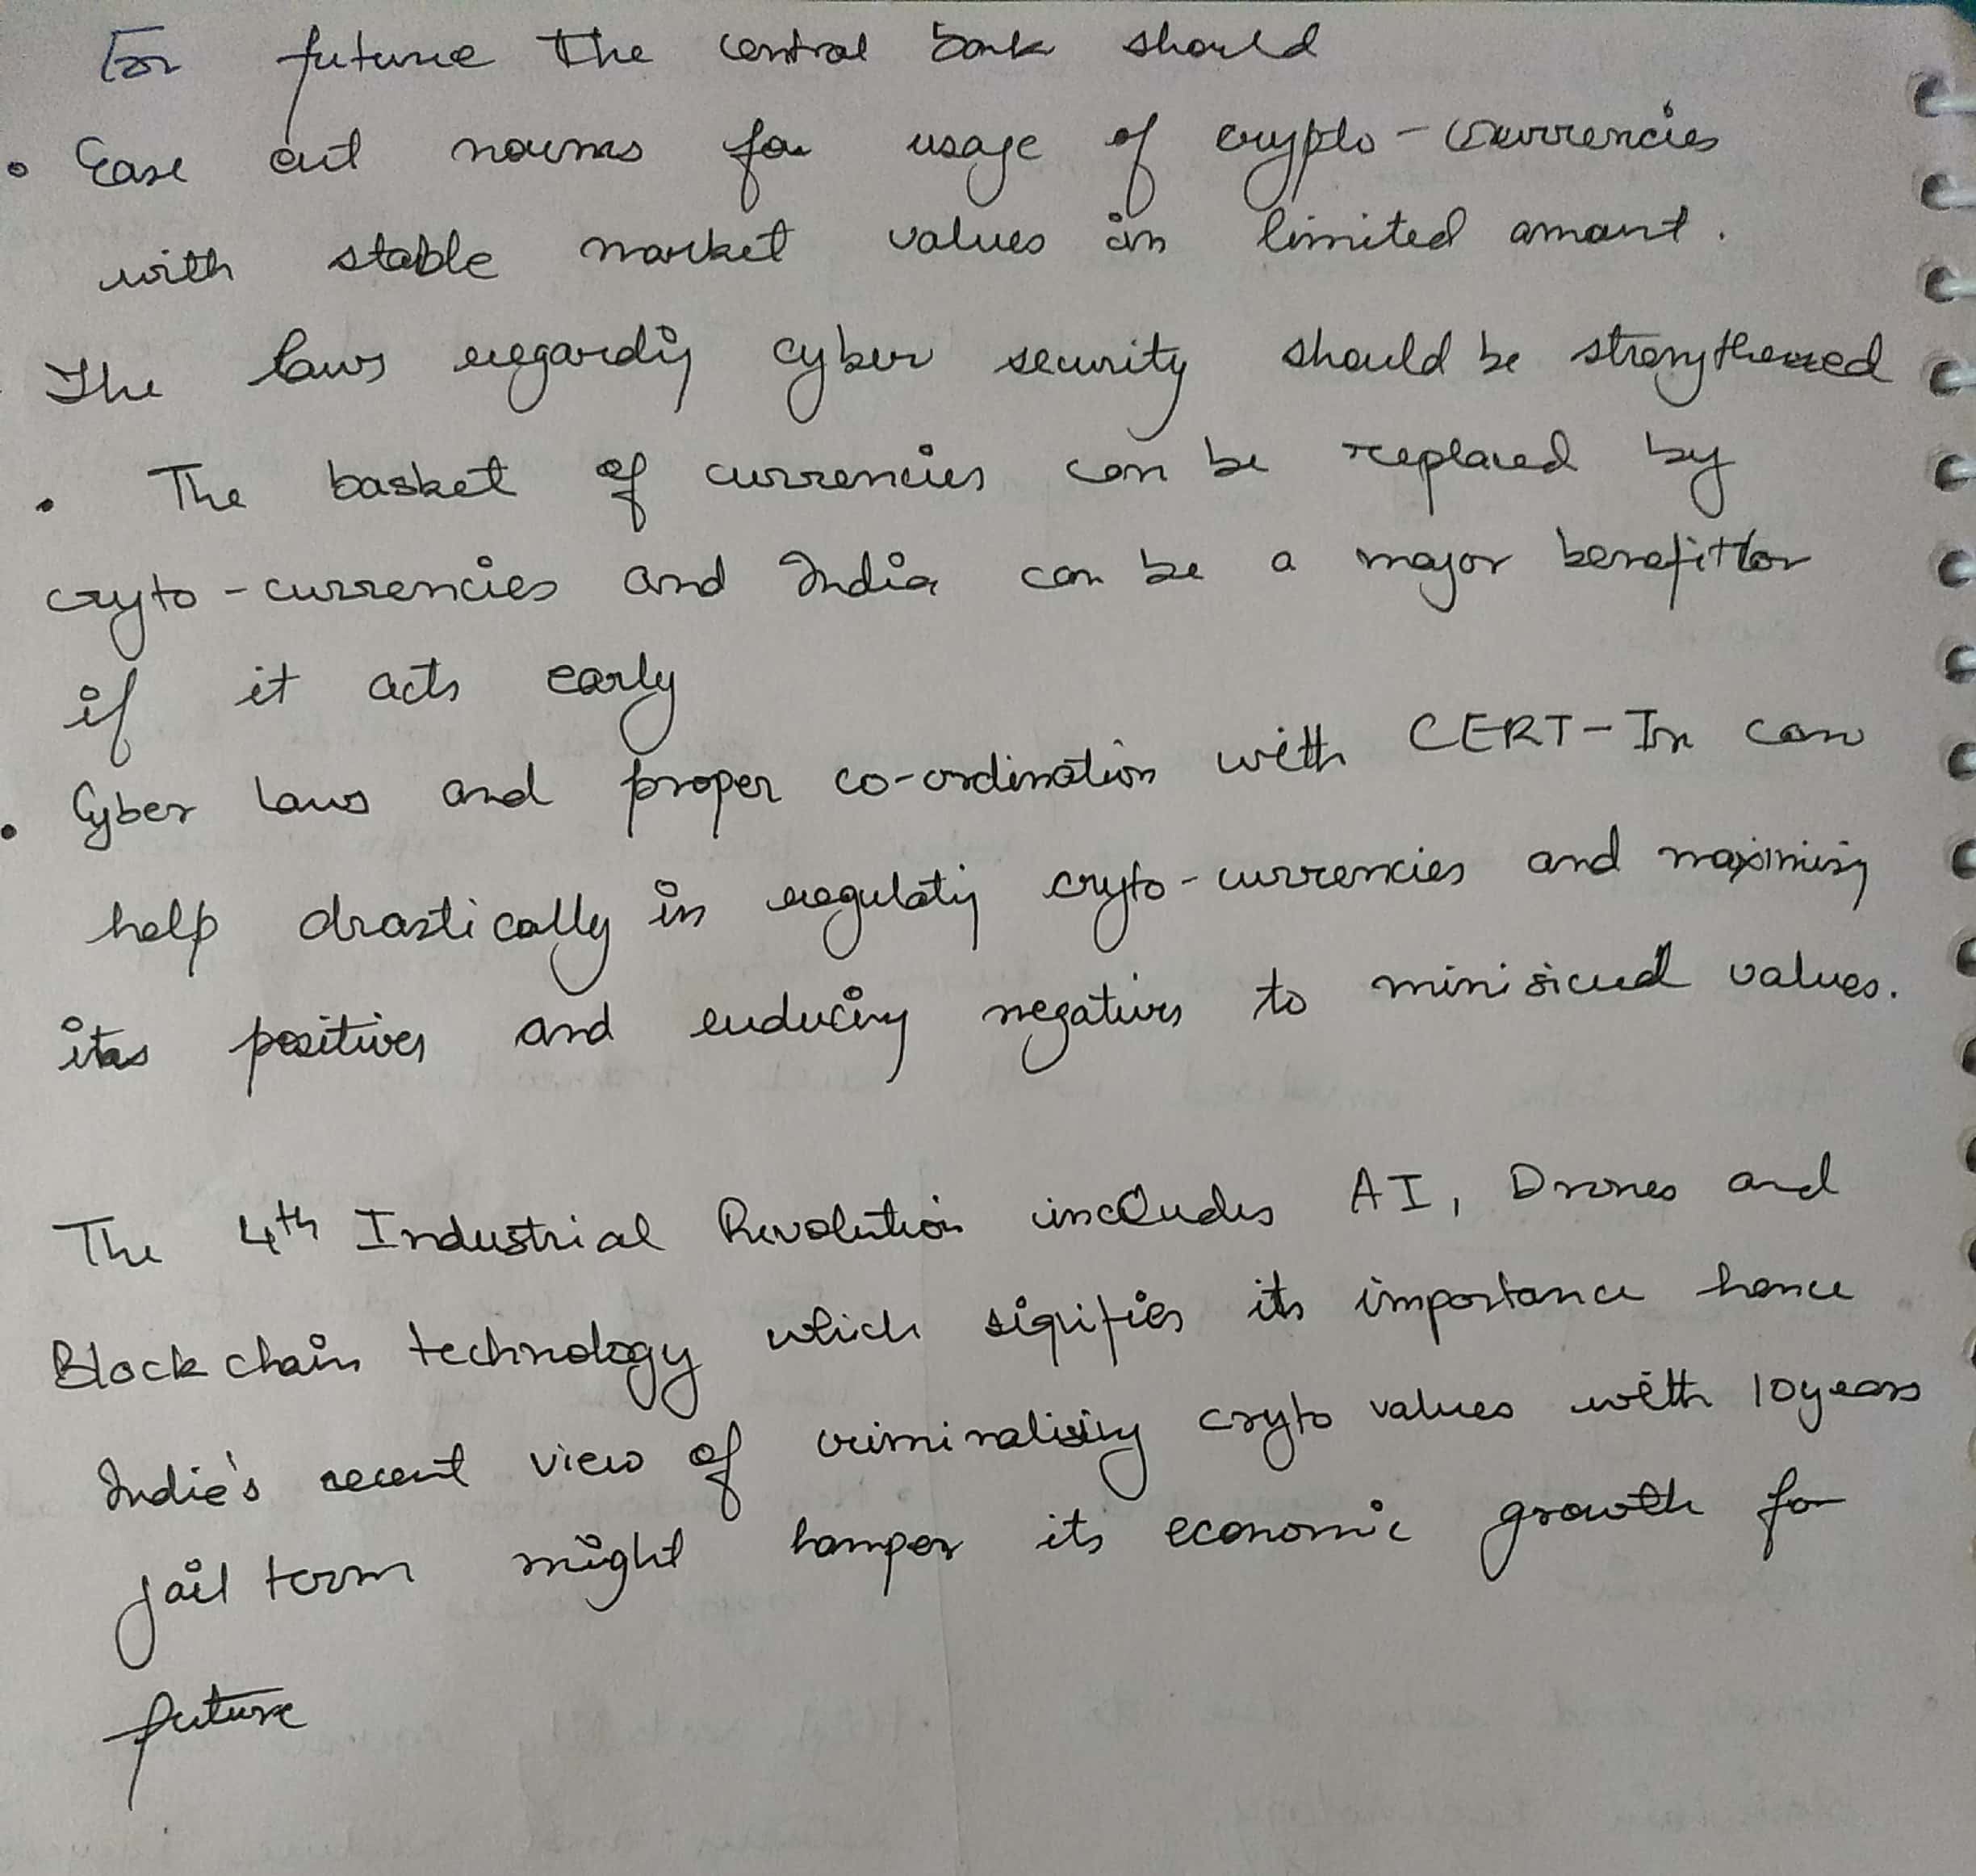 For future the central bank should
• Ease out norms for usage of crypto-currencies
with stable market values in limited amount.
The laws regarding cyber security should be strengthened
• The basket of currencies can be replaced by
cryto-currencies and India can be a major benefittor
if it acts early
• Cyber laws and proper co-ordination with CERT-In can
help drastically in regulatig cryto-currencies and maximising
its positives and reducing negatives to minisiced values.
The 4th Industrial Revolution includes AI, Drones and
Block chain technology which signifies its importance hence
India's recent view of criminalising cryto values with 10years
jail term might hamper its economic growth for
future